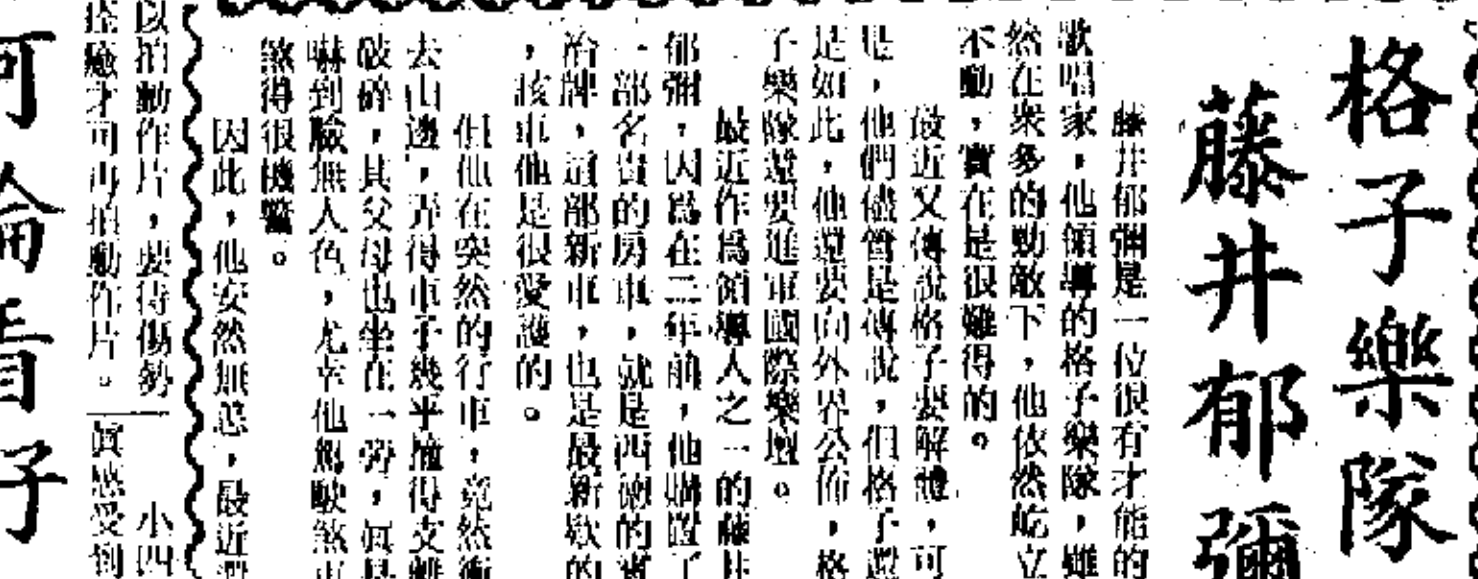 格子樂隊
藤井郁彌
藤井郁彌是一位很有才能的
歌唱家，他領導的格子樂隊，雖
然在衆多的勁敵下，他依然屹立
不動，實在是很難得的。
最近又傳說格子要解體，可
是，他們儘管是傳說，但格子還
是如此，他還要向外界公佈，格
子樂隊還要進軍國際樂壇。
最近作爲領導人之一的藤井
郁彌，因爲在二年前，他購置了
一部名貴的房車，就是西德的賓
冶牌，這部新車，也是最新欵的
，該車他是很愛護的。
但他在突然的行車，竟然衝
去山邊，弄得車子幾乎撞得支離
破碎，其父母也坐在一旁，眞是
嚇到臉無人色，尤幸他駕駛煞車
煞得很機警。
因此，他安然無恙，最近還
以拍動作片，要待傷勢
痊癒才可再拍動作片。
小四
眞感受到
可淪青子